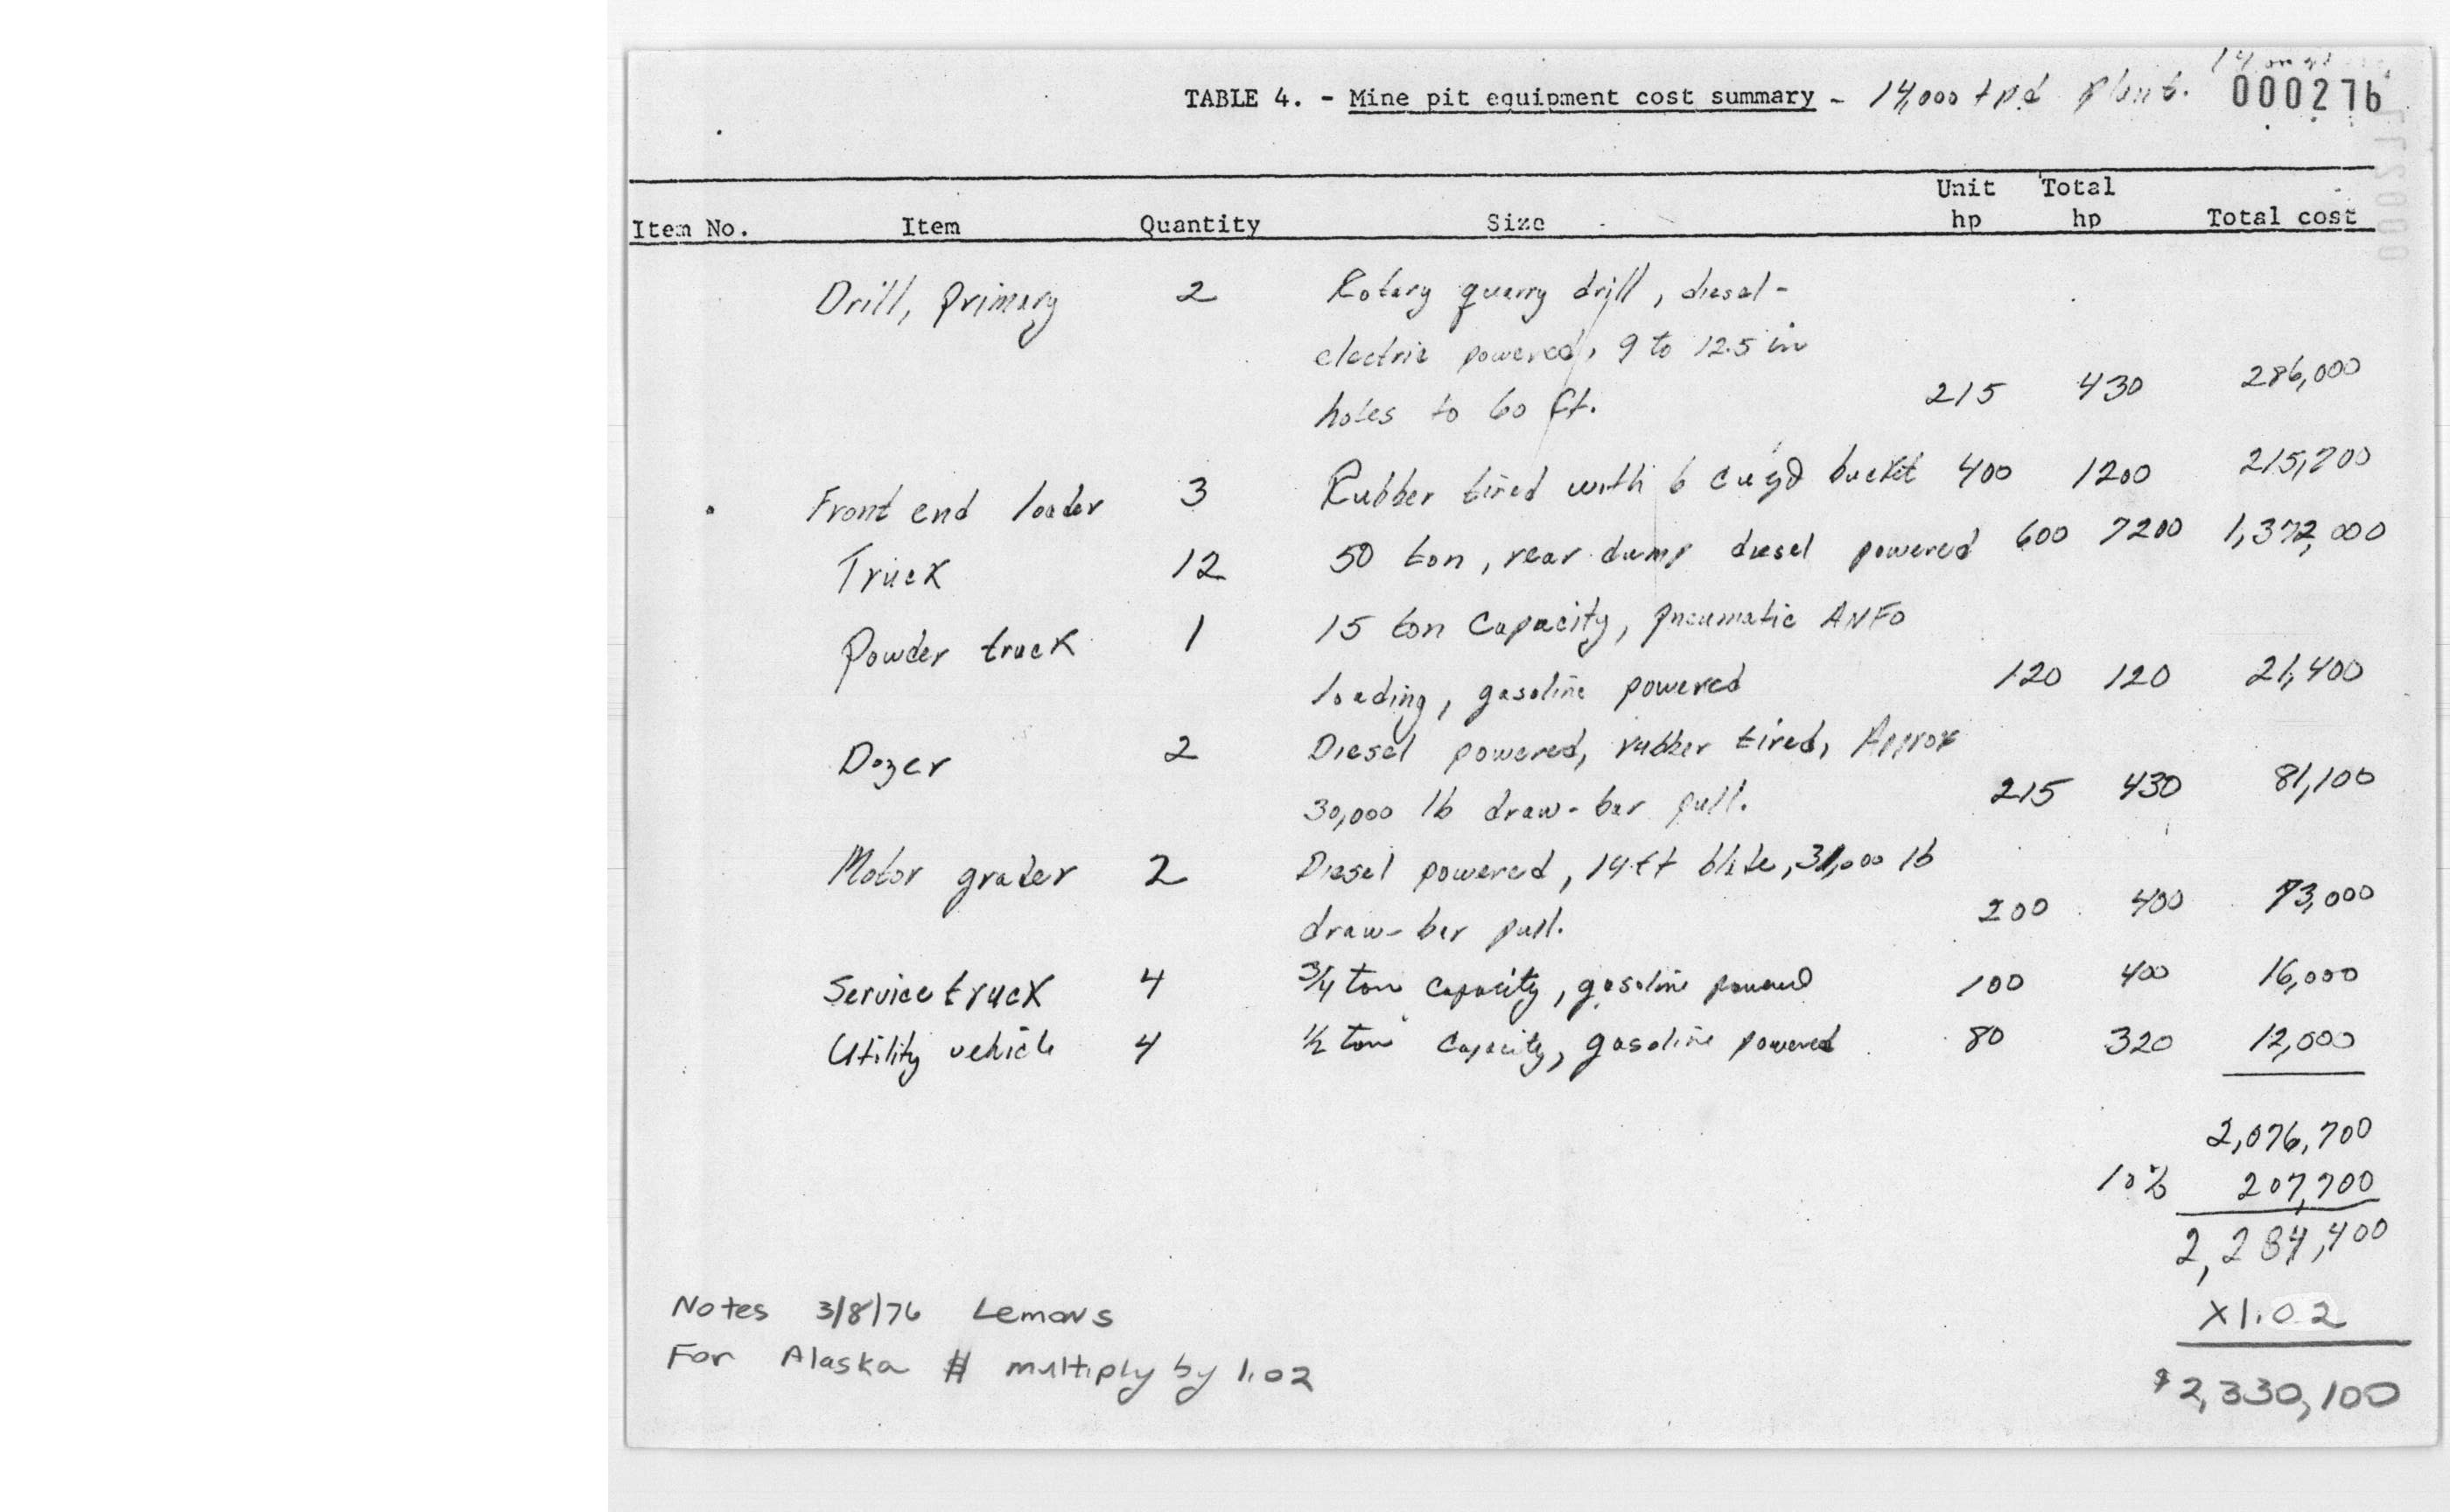 14
TABLE 4. - Mine pit equipment cost summary - 14,000 tpd plant. 000276
Unit Total
Item No. Item Quantity Size hp hp Total cost
Drill, primary 2 Rotary quarry drill, diesel-
electric powered, 9 to 12.5 in
holes to 60 ft. 215 430 286,000
Front end loader 3 Rubber tired with 6 cu yd bucket 400 1200 215,200
Truck 12 50 ton, rear dump diesel powered 600 7200 1,372,000
Powder truck 1 15 ton capacity, pneumatic ANFO
loading, gasoline powered 120 120 21,400
Dozer 2 Diesel powered, rubber tired, Approx
30,000 lb draw-bar pull. 215 430 81,100
Motor grader 2 Diesel powered, 14 ft blade, 31,000 lb
draw-bar pull. 200 400 73,000
Service truck 4 3/4 ton capacity, gasoline powered 100 400 16,000
Utility vehicle 4 1/2 ton capacity, gasoline powered 80 320 12,000
2,076,700
10% 207,700
2,284,400
X1.02
$2,330,100
Notes 3/8/76 Lemons
For Alaska # multiply by 1.02